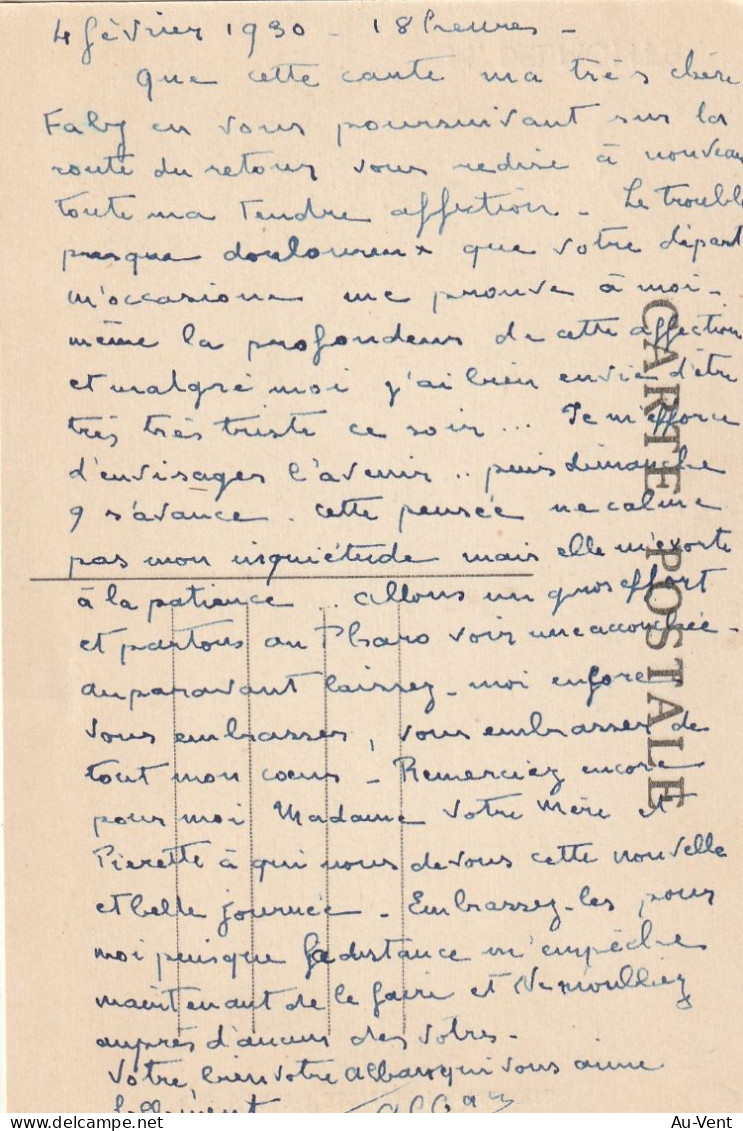 4 février 1930 - 18 heures -
Que cette carte ma très chère
Faby en vous poursuivant sur la
route du retour vous redise à nouveau
toute ma tendre affection - Le trouble
presque douloureux que votre départ
m'occasionne me prouve à moi-
même la profondeur de cette affection
et malgré moi j'ai bien envie d'être
très très triste ce soir... Je m'efforce
d'envisager l'avenir .. puis dimanche
9 s'avance. cette pensée ne calme
pas mon inquiétude mais elle m'exorte
à la patience ... allons un gros effort
et partons au Pharo voir une accouchée -
auparavant laissez-moi encore
vous embrasser, vous embrasser de
tout mon coeur - Remerciez encore
pour moi Madame votre mère et
Pierette à qui nous devons cette nouvelle
et belle journée - Embrassez-les pour
moi puisque la distance m'empêche
maintenant de le faire et ne m'oubliez
auprès d'aucun des vôtres -
Votre, bien votre qui vous aime
follement
CARTE POSTALE
Au-Vent